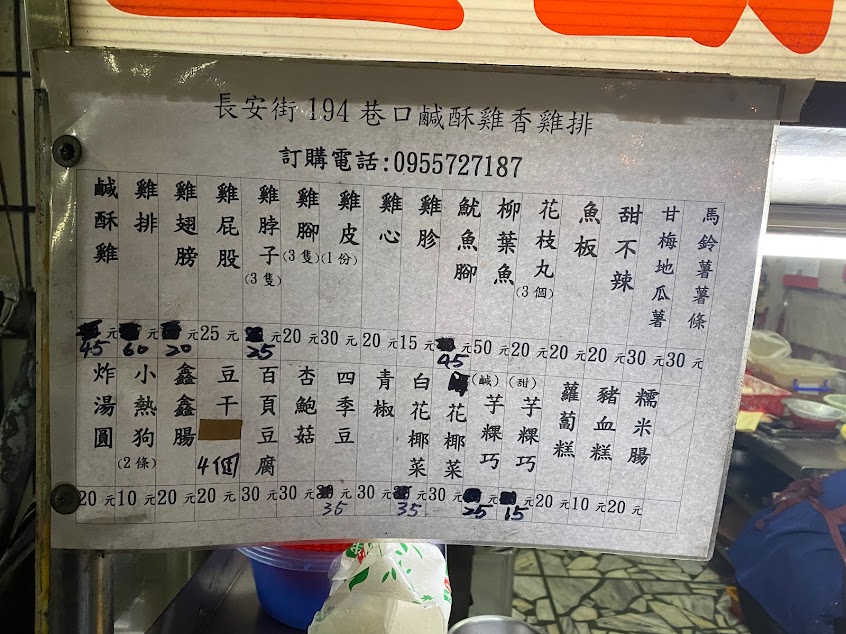 長安街 194 巷口鹹酥雞香雞排
訂購電話:0955727187
鹹酥雞 雞排 雞翅膀 雞屁股 雞脖子(3隻) 雞腳(3隻) 雞皮(1份) 雞心 雞胗 魷魚腳 柳葉魚 花枝丸(3個) 魚板 甜不辣 甘梅地瓜薯 馬鈴薯薯條
45元 60元 20元 25元 25元 20元 30元 20元 15元 45元 50元 20元 20元 20元 30元 30元
炸湯圓 小熱狗(2條) 鑫鑫腸 豆干4個 百頁豆腐 杏鮑菇 四季豆 青椒 白花椰菜 花椰菜 (鹹)芋粿巧 (甜)芋粿巧 蘿蔔糕 豬血糕 糯米腸
20元 10元 20元 20元 30元 30元 35元 30元 35元 30元 25元 15元 20元 10元 20元